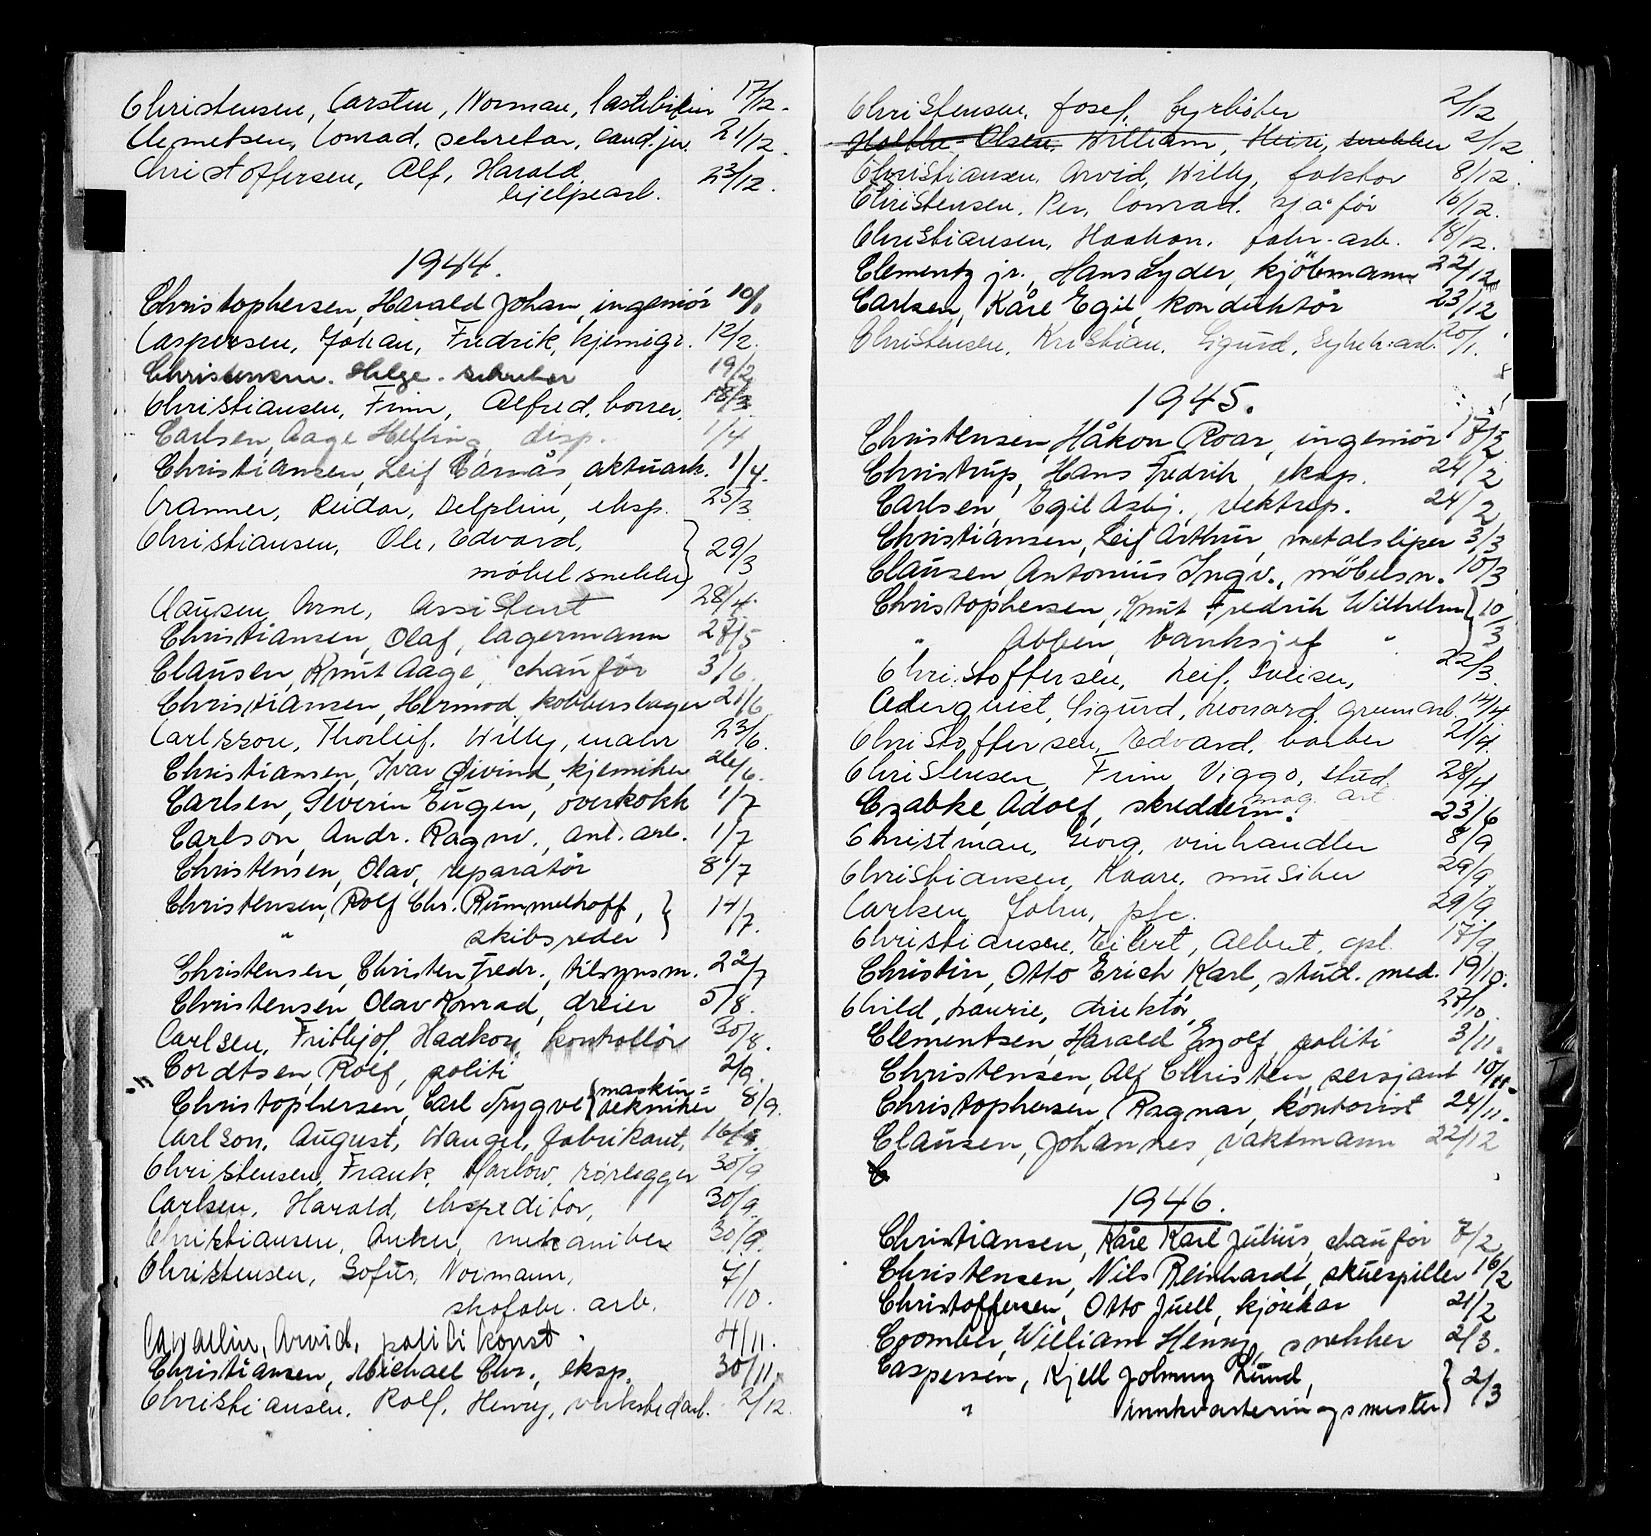 Christensen, Carsten, Norman, lastebileier 17/12.
Clemetsen, Conrad, sekretær, cand.jur. 21/12.
Christoffersen, Alf, Harald, 23/12.
hjelpearb.
1944.
Christophersen, Harald Johan, ingeniør 10/1
Caspersen, Johan, Fredrik, kjemigr. 12/2.
Christensen. Helge. sekretær 19/2
Christiansen, Finn, Alfred, borer. 18/3
Carlsen, Aage Helling, disp. 1/4
Christiansen, Leif Carnås, aktuark. 1/4.
Cranner, Reidar, Delphin, eksp. 25/3.
Christiansen, Ole, Edvard, } 29/3
møbelsnekker
Clausen, Arne, Assistent 28/4.
Christiansen, Olaf, lagermann 27/5
Clausen, Knut Aage, chaufør 3/6.
Christiansen, Hermod, kobberslager 21/6
Carlsson, Thorleif. Willy, maler 23/6.
Christiansen, Ivar Øivind, kjemiker 26/6.
Carlsen, Severin Eugen, overkokk 1/7
Carlson, Andr. Ragnv., anl. arb. 1/7
Christensen, Olav, reparatør 8/7
Christensen, Rolf Chr. Rummelhoff, } 14/7.
" skibsreder
Christensen, Christen Fredr., tilsynsm. 22/7
Christensen, Olav Konrad, dreier 5/8.
Carlsen, Frithjof, Haakon, kontrollør 30/8.
" Cordtsen, Rolf, politi 2/9.
Christophersen, Carl Trygve { maskin=
tekniker 8/9.
Carlson, August, Wangel, fabrikant, 16/9.
Christensen, Frank, Harlow, rørlegger 30/9
Carlsen, Harald, ekspeditør, 30/9.
Christiansen, Anker, mekaniker 30/9.
Christensen, Sofus, Normann, 7/10.
skofabr. arb.
Cavallin, Arvid, politikonst. 4/11.
Christiansen, Michael Chr., eksp. 30/11.
Christiansen, Rolf, Henry, verkstedarb. 2/12.
Christensen, Josef, fyrbøter 2/12
Holthe-Olsen, William, Henri, snekker 2/12
Christiansen, Arvid, Willy, faktor 8/12.
Christensen, Per, Conrad. sjåfør 16/12.
Christiansen, Haakon, fabr. arb. 18/12.
Clementz jr., Hans Lyder, kjøbmann 22/12
Carlsen, Kåre Egil, konduktør 23/12
Christensen, Kristian, Sigurd, 20/1.
1945.
Christensen, Håkon Roar, ingeniør 17/2
Christrup, Hans Fredrik, eksp. 24/2
Carlsen, Egil Asbj., vektrep. 24/2
Christiansen, Leif Arthur, metalsliper 3/3
Clausen, Antonius Ingv., møbelsn. 10/3
Christophersen, Knut Fredrik Wilhelm } 10/3
" Abben, banksjef "
Christoffersen, Leif, Sveiser, 22/3.
Cederquist, Sigurd, Leonard, grunnarb. 14/4.
Christoffersen, Edvard, barber 21/4.
Christensen, Finn Viggo, stud. 28/4.
mag. art.
Czabke, Adolf, skredderm. 23/6
Christman, Georg, vinhandler 8/9
Christiansen, Kaare, musiker 29/9.
Carlsen, John, pfc. 29/9.
Christiansen, Eilert, Albert, cpl. 17/9.
Christin, Otto Erich Karl, stud. med. 19/10.
Child, Laurie, direktør, 27/10.
Clementsen, Harald Eyolf, politi 3/11.
Christensen, Alf Christen, sersjant 10/11.
Christophersen, Ragnar, kontorist 24/11.
Clausen, Johannes, vaktmann 22/12
C
1946.
Christiansen, Kåre Karl Julius, chaufør 7/2
Christensen, Nils Reinhardt, skuespiller 16/2
Christoffersen, Otto Juell, kjørekar 21/2
Coomber, William Henry, snekker 2/3.
Caspersen, Kjell Johnny Rund, } 2/3
" innkvarteringsmester